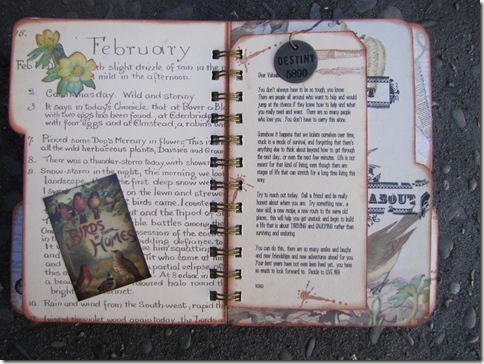 15.
February
Feb
th slight drizzle of rain in the
mild in the afternoon.
2. Candlemas day. Wild and stormy.
3. It says in today's Chronicle that at Dover a Bl
with two eggs has been found, at Edenbridg
with four eggs and at Elmstead, a robins
7. Picked some Dog's Mercury in flower, This is
all the wild herbaceous plants, Daisies and Ground
8. There was a thunder-storm today with show
9. Snow-storm in the night, this morning we loo
landscape first deep snow we
I on the lawn and strew
birds came. I counte
ut and the Tripod of
ble battles among
session of the coco
dding defiance to
him squatting
Tit who came at hi
partial eclipse
At 8 o'clock in
aloured halo round the
bright
10. Rain and wind from the South-west, rapid th
violet wood again today, the Lords
BIRDS
Home
DESTINY
5800
Dear Valued
You don't always have to be so tough, you know.
There are people all around who want to help and would
jump at the chance if they knew how to help and what
you really need and want. There are so many people
who love you. You don't have to carry this alone.
Somehow it happens that we isolate ourselves over time,
stuck in a mode of survival, and forgetting that there's
anything else to think about beyond how to get through
the next day, or even the next few minutes. Life is not
meant for that kind of living, even though there are
stages of life that can stretch for a long time living this
way.
Try to reach out today. Call a friend and be really
honest about where you are. Try something new, a
new skill, a new recipe, a new route to the same old
places, this will help you get unstuck and begin to build
a life that is about THRIVING and ENJOYING rather than
surviving and enduring.
You can do this, there are so many smiles and laughs
and new friendships and new adventures ahead for you.
Your best years have not even been lived yet, you have
so much to look forward to. Decide to LIVE BIG!
XOXO
ABOUT